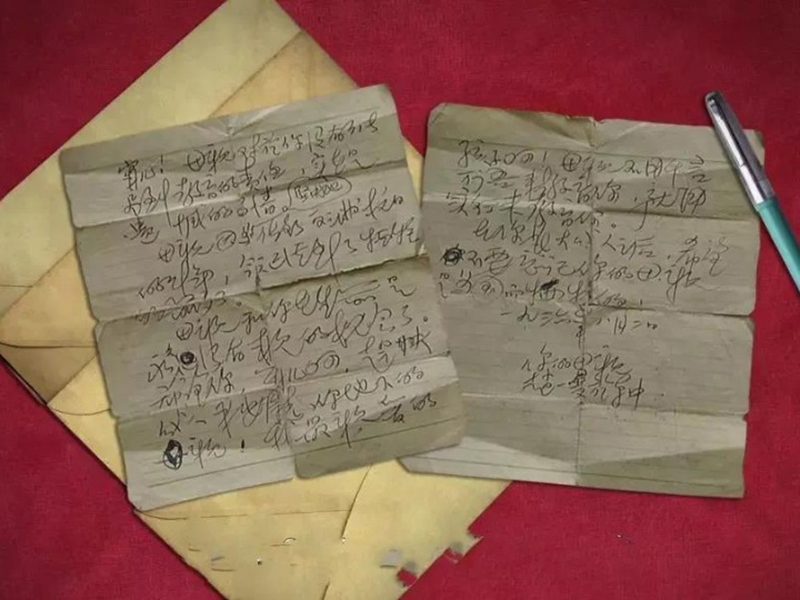 宁儿！母亲对于你没有能尽
到教育的责任，实在是
遗憾的事情。
母亲因为坚决地做了反满抗日
的斗争，今天已经到了牺牲
的前夕了。
母亲和你在生前是
没有再见的机会了。
希望你，宁儿啊，赶快
成人来安慰你地下的
母亲！我最亲爱的
孩子啊！母亲不用千言
万语来教育你，就用
实行来教育你。
在你长大成人之后，希望
不要忘记你的母亲
是为国而牺牲的！
一九三六年八月二日
你的母亲
赵一曼于车中